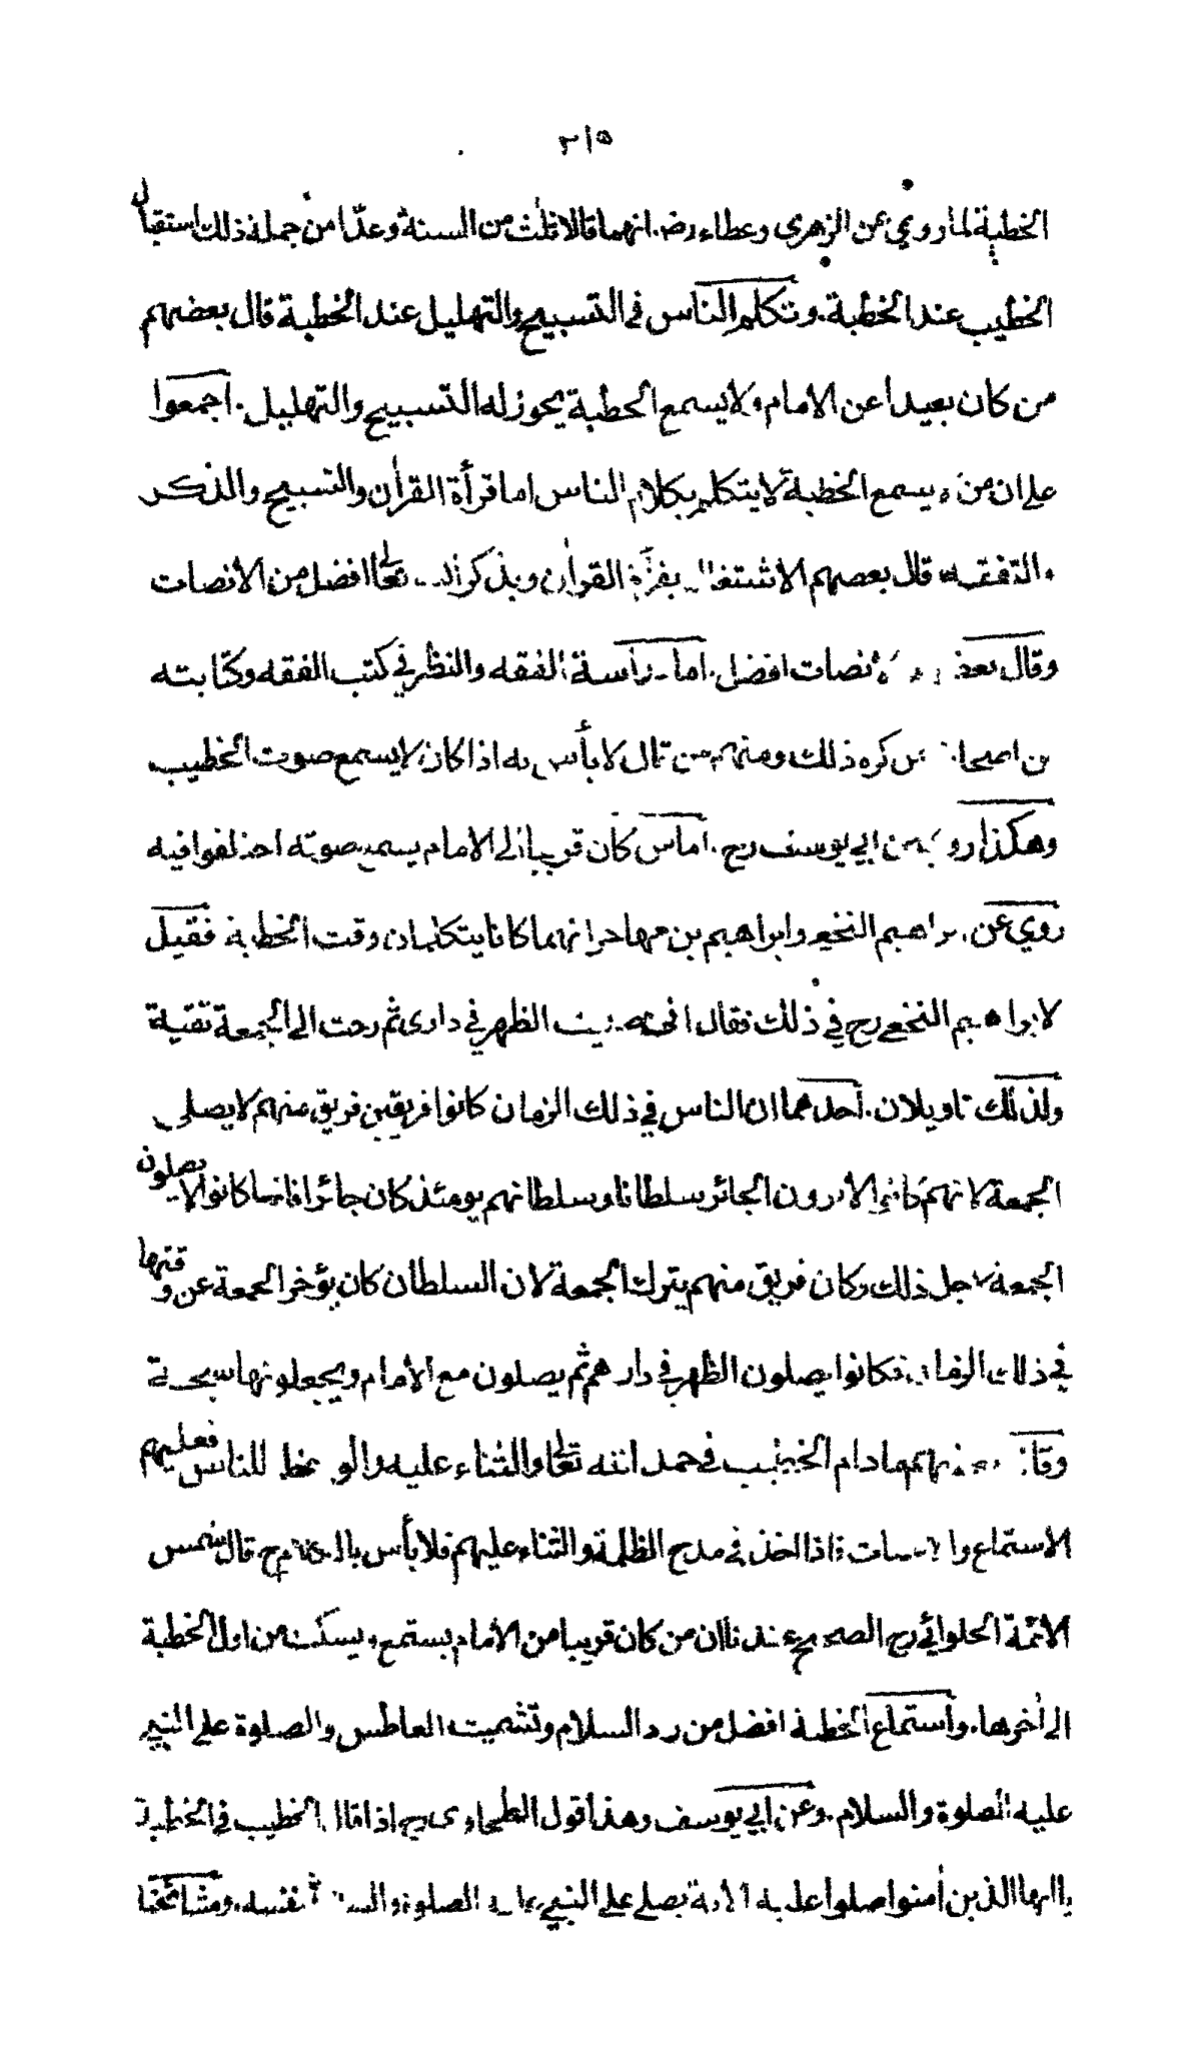 ٢١٥
الخطبة لما روي عن الزهرى وعطاء رض انهما قالا ثلث من السنة وعدّا من جملة ذلك استقبال
الخطيب عند الخطبة. وتكلم الناس في التسبيح والتهليل عند الخطبة قال بعضهم
من كان بعيدا عن الامام ولا يسمع الخطبة يجوز له التسبيح والتهليل. اجمعوا
على ان من يسمع الخطبة لا يتكلم بكلام الناس اما قرأة القرأن والتسبيح والذكر
والتفقه قال بعضهم الاشتغال بقرأة القرأن وبذكر الله تعالى افضل من الانصات
وقال بعضهم الانصات افضل. اما دراسة الفقه والنظر في كتب الفقه وكتابته
من اصحابنا من كره ذلك ومنهم من قال لا بأس به اذا كان لا يسمع صوت الخطيب
وهكذا روي عن ابي يوسف رح. اما من كان قريبا الى الامام يسمع صوته اختلفوا فيه
روي عن ابراهيم النخعي وابراهيم بن مهاجر انهما كانا يتكلمان وقت الخطبة فقيل
لابراهيم النخعي رح في ذلك فقال اني صليت الظهر في دارى ثم رحت الى الجمعة تقية
ولذلك تاويلان. احدهما ان الناس في ذلك الزمان كانوا فريقين فريق منهم لا يصلى
الجمعة لانهم كانوا لا يرون الجائر سلطانا وسلطانهم يومئذ كان جائرا فانما كانوا لا يصلون
الجمعة لاجل ذلك وكان فريق منهم يترك الجمعة لان السلطان كان يؤخر الجمعة عن وقتها
في ذلك الزمان فكانوا يصلون الظهر في دارهم ثم يصلون مع الامام ويجعلونها سبحة
وقال بعضهم ما دام الخطيب في حمد الله تعالى والثناء عليه والوعظ للناس فعليهم
الاستماع والانصات فاذا اخذ في مدح الظلمة والثناء عليهم فلا بأس بالكلام ح قال شمس
الائمة الحلوائي رح الصحيح عندنا ان من كان قريبا من الامام يستمع ويسكت من اول الخطبة
الى أخرها. واستماع الخطبة افضل من رد السلام وتشميت العاطس والصلوة على النبي
عليه الصلوة والسلام. وعن ابي يوسف وهذا قول الطحاوى رح اذا قال الخطيب في الخطبة
يا ايها الذين أمنوا صلوا عليه الأية يصلى على النبي عليه الصلوة والسلام في نفسه. ومشائخنا